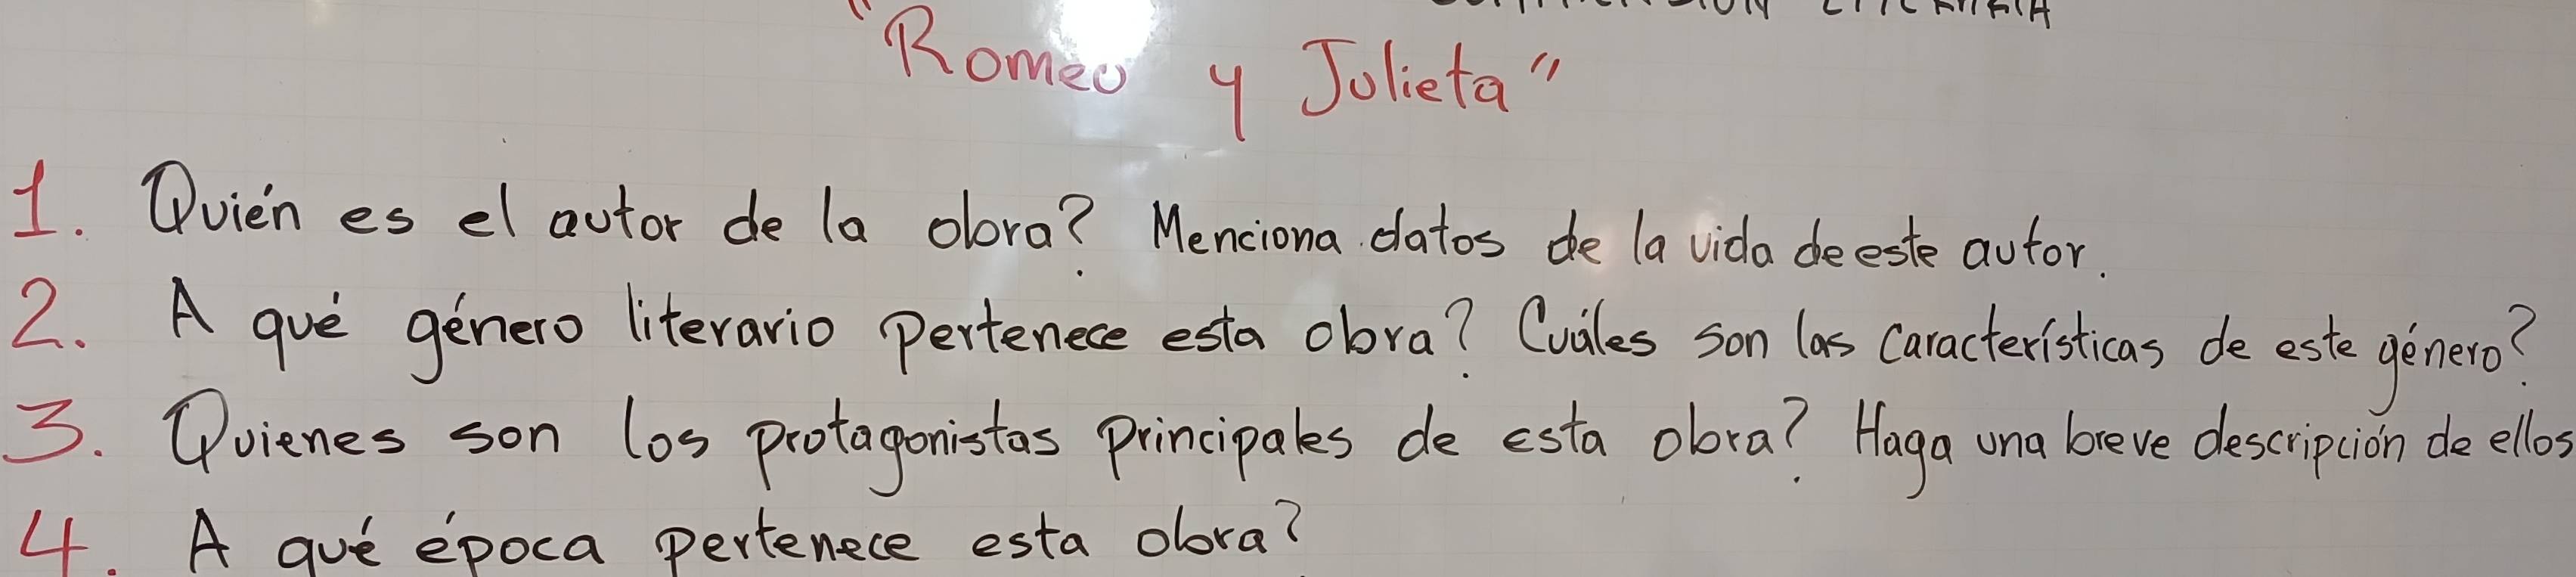 "Romeo y Julieta"
1. Quién es el autor de la obra? Menciona datos de la vida de este autor.
2. A qué género literario pertenece esta obra? Cuáles son las características de este género?
3. Quienes son los protagonistas principales de esta obra? Haga una breve descripción de ellos
4. A qué época pertenece esta obra?